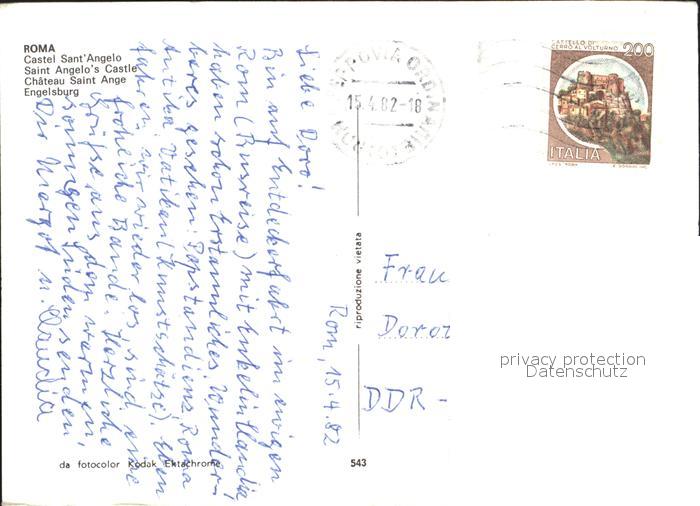 ROMA
Castel Sant'Angelo
Saint Angelo's Castle
Château Saint Ange
Engelsburg
Rom, 15.4.82
Liebe Doro!
Bin auf Entdeckerfahrt im ewigen
Rom (Busreise) mit Enkelin Claudia
haben schon Erstaunliches, Wunder-
bares gesehen: Papstaudienz, Roma
Antika, Vatikan (Kunstschätze). Eben
fahren wir wieder los, sind eine
fröhliche Bande. Herzliche
Grüße aus dem warmen,
sonnigen Süden senden
Dir Margot u. Claudia
da fotocolor Kodak Ektachrome
543
riproduzione vietata
FERROVIA
15.4.82-18
CASTELLO DI
CERRO AL VOLTURNO
200
ITALIA
Frau
Dorot
DDR -
privacy protection
Datenschutz